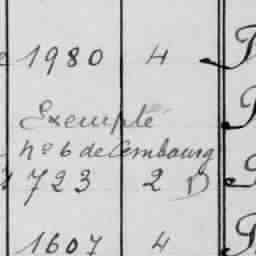 1980 4
Exempté
no 6 de Cembourg
723 2 D
1607 4